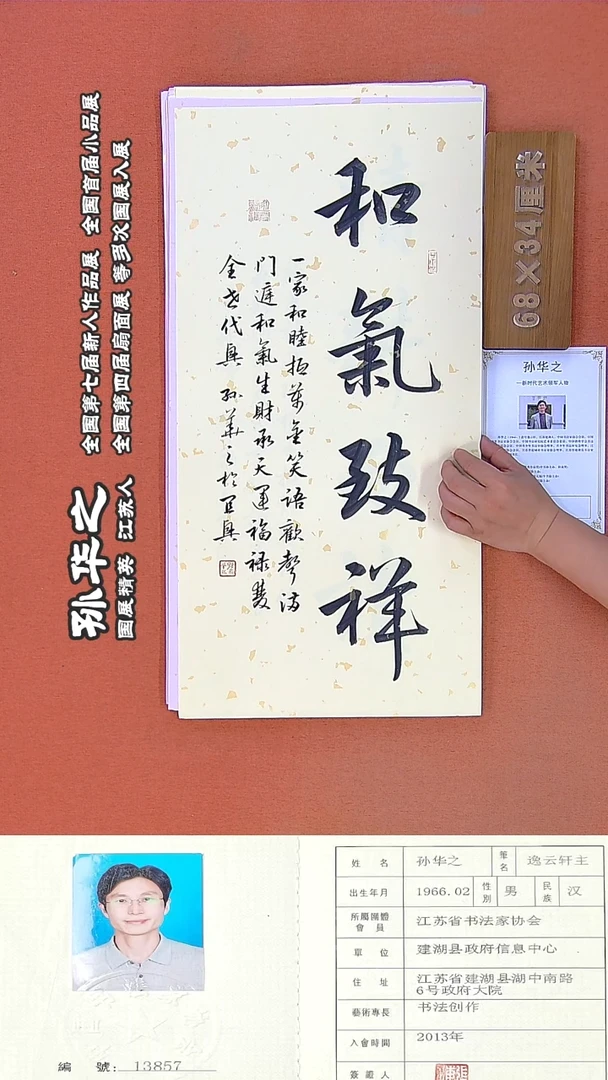 和氣致祥
一家和睦抵萬金笑語歡聲滿
門庭和氣生財承天運福祿雙
全世代興 孫華之於卫興
68×34厘米
孙华之
全国第七届新人作品展 全国首届小品展
全国第四届扇面展 等多次国展入展
孙华之
国展精英 江苏人
姓名 孙华之 筆名 逸云轩主
出生年月 1966.02 性別 男 民族 汉
所屬團體會員 江苏省书法家协会
單位 建湖县政府信息中心
住址 江苏省建湖县湖中南路
6号政府大院
藝術專長 书法创作
入會時間 2013年
簽證人
編號: 13857